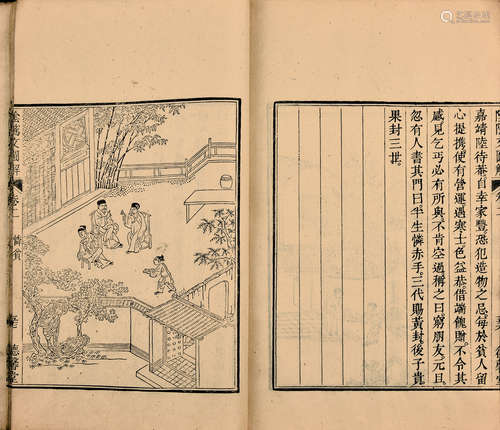 嘉靖陸待菴自幸家豐恐犯造物之忌每於貧人留
心提携使有營運遇寒士色益恭借端餽贈不令其
感見乞丐必有所與不肯空過稱之曰窮朋友元旦
忽有人書其門曰半生憐赤手三代賜黃封後子貴
果封三世
陰隲文圖解
卷二
憐貧
德馨堂